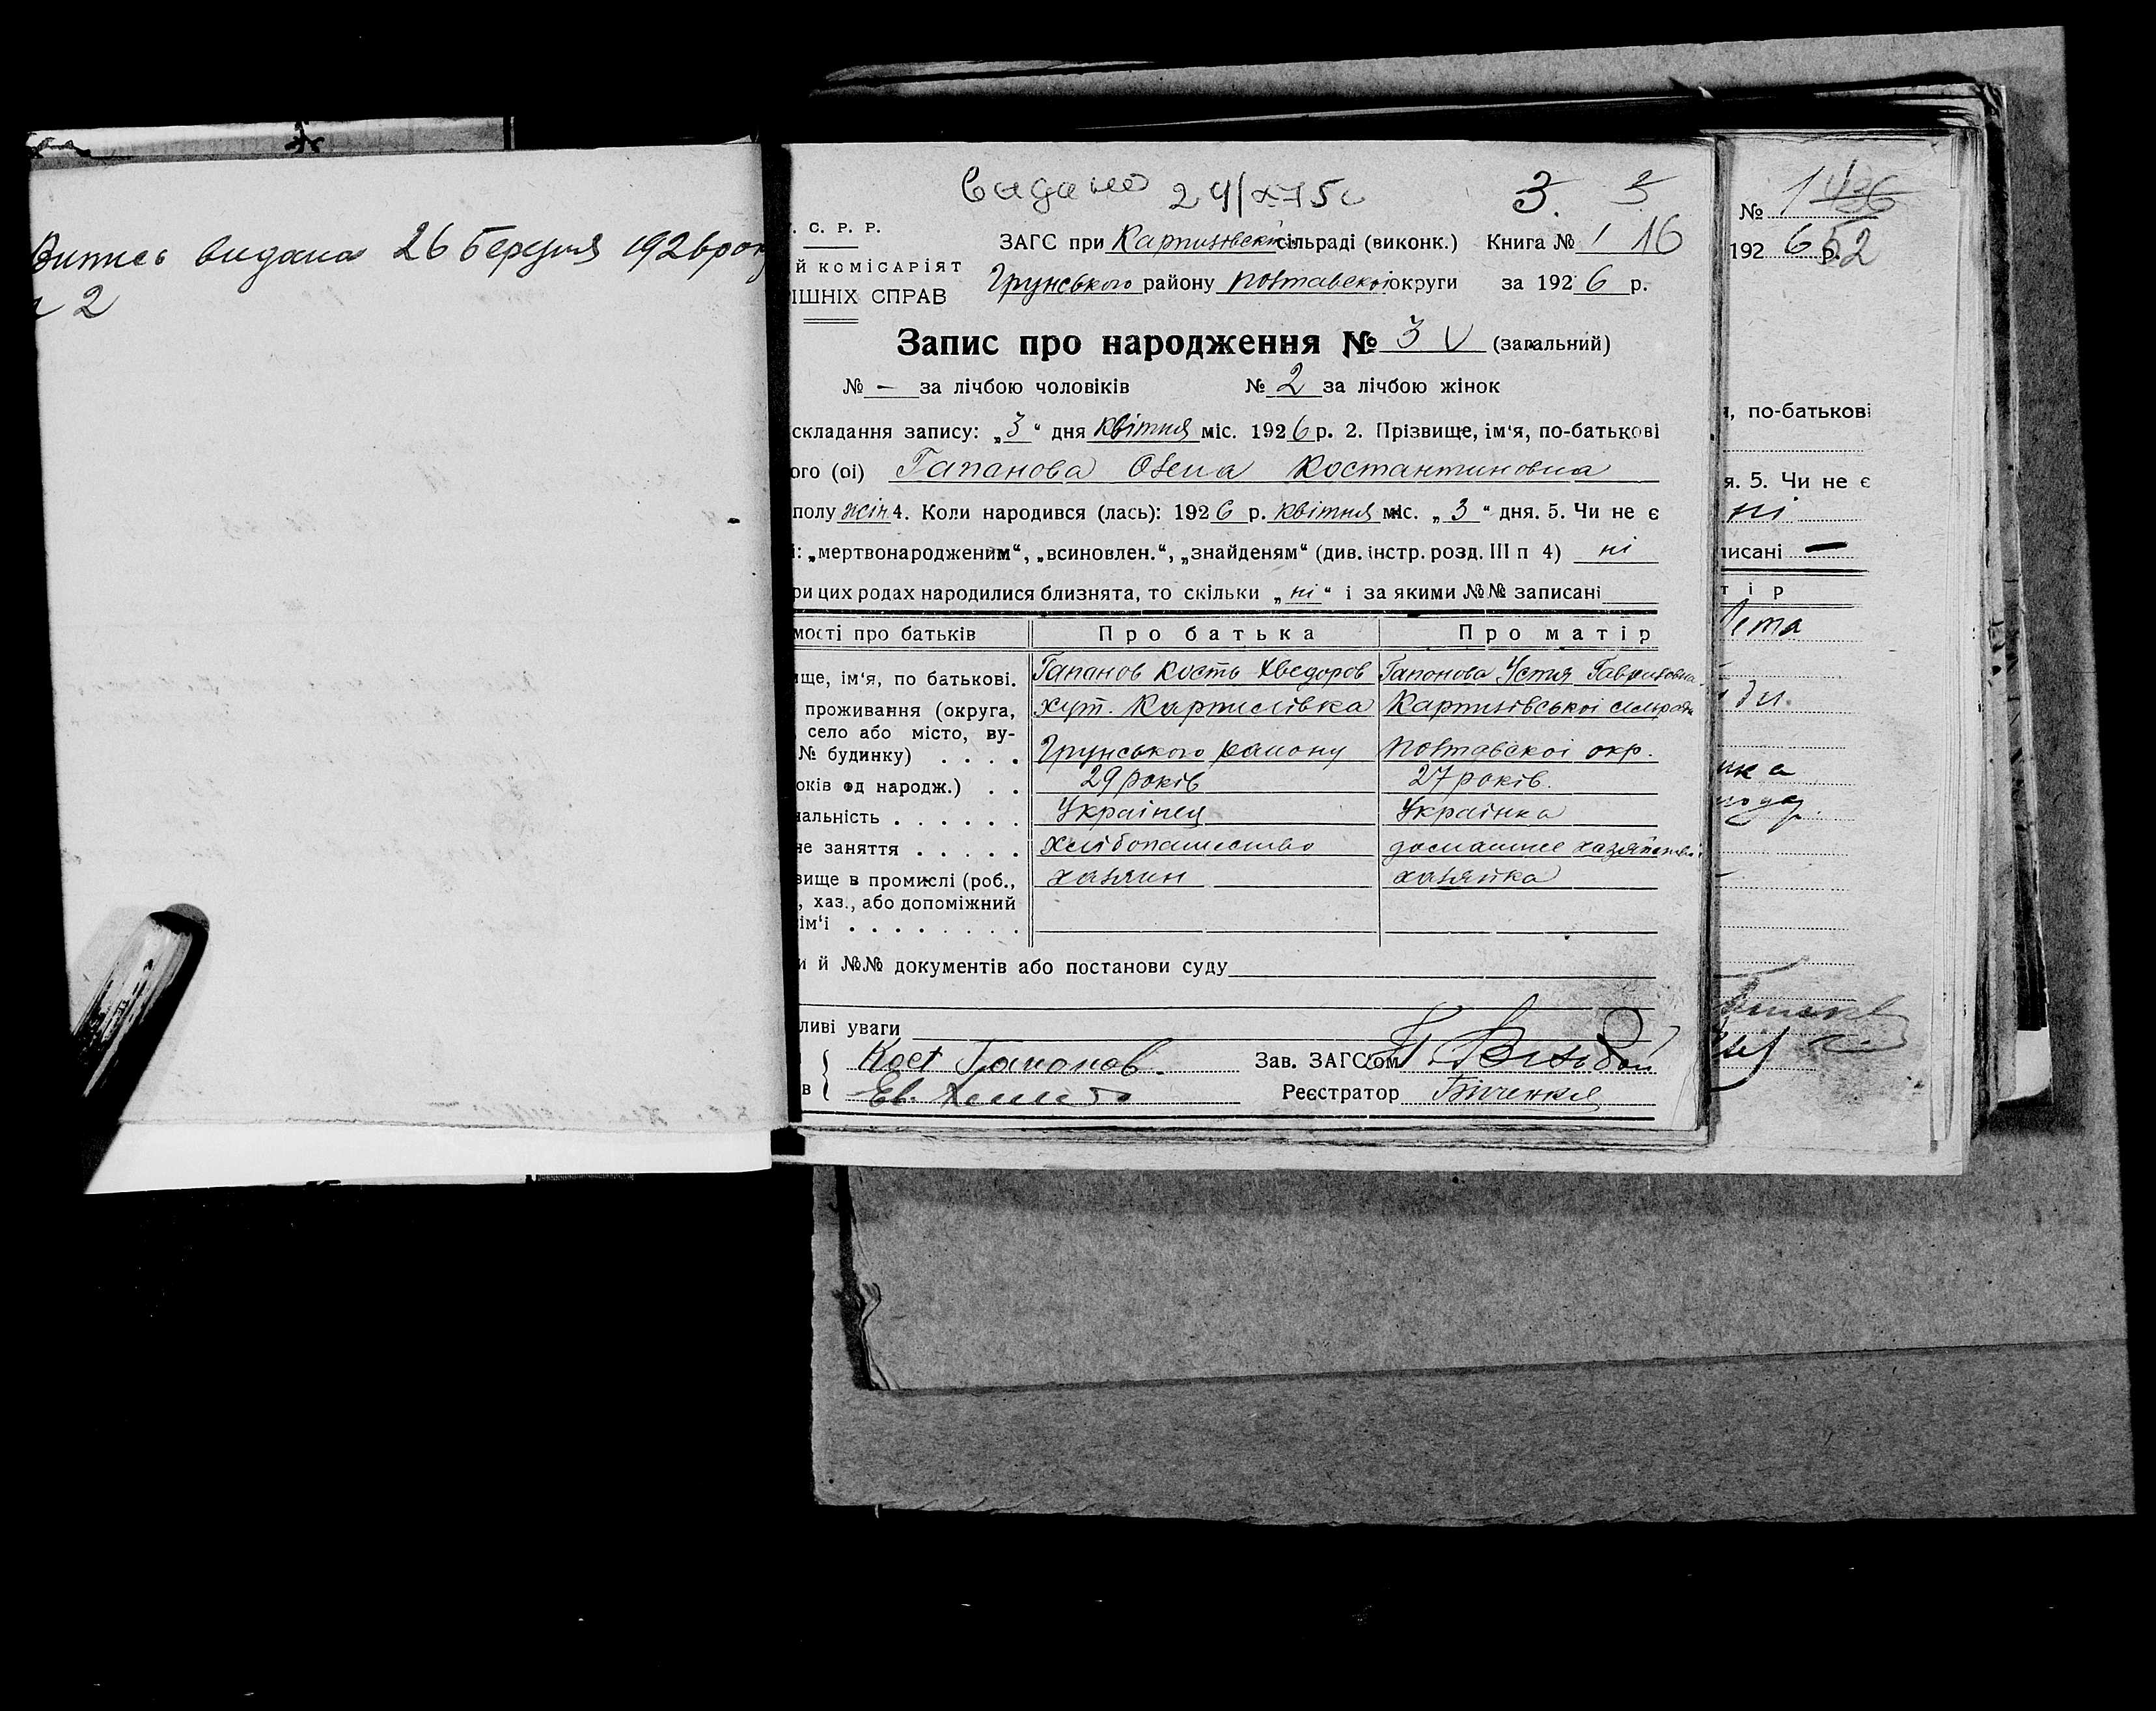 Витись видана 26 березня 1926 рок
2
видано 24/
3.
. С. Р. Р.
й КОМІСАРІЯТ
ІШНІХ СПРАВ
ЗАГС при Карпилівські сільраді (виконк.) Книга № 1 16
Грунського району Полтавскої округи за 1926 р.
Запис про народження № 3 V (загальний)
№ — за лічбою чоловіків № 2 за лічбою жінок
складання запису: „3“ дня квітня міс. 1926 р. 2. Прізвище, ім'я, по-батькові
ого (ої) Гапанова Олена Костантиновна
полу жін. 4. Коли народився (лась): 1926 р. квітня міс. „3“ дня. 5. Чи не є
і: „мертвонародженим“, „всиновлен.“, „знайденям“ (див. інстр. розд. III п 4) ні
ри цих родах народилися близнята, то скільки „ні“ і за якими №№ записані
мості про батьків Про батька Про матір
ище, ім'я, по батькові. Гапанов Кость Хведоров Гапонова Устя Гавриловна
проживання (округа, хут. Карпилівка Карпилівської сільради
село або місто, ву-
№ будинку) . . . . Грунського району Полтавскої окр.
оків од народж.) . . 29 років 27 років.
альність . . . . . . Українец Українка
не заняття . . . . . хлібопашество домашнє хазяйство
вище в промислі (роб., хазяин хазяйка
, хаз., або допоміжний
ім'ї . . . . . . . .
и й №№ документів або постанови суду
ливі уваги
Кост Гапонов. Зав. ЗАГС'ом
в Ев. Реєстратор Бінченко
№ 1
1926 р. 52
, по-батькові
я. 5. Чи не є
ні
писані —
тір